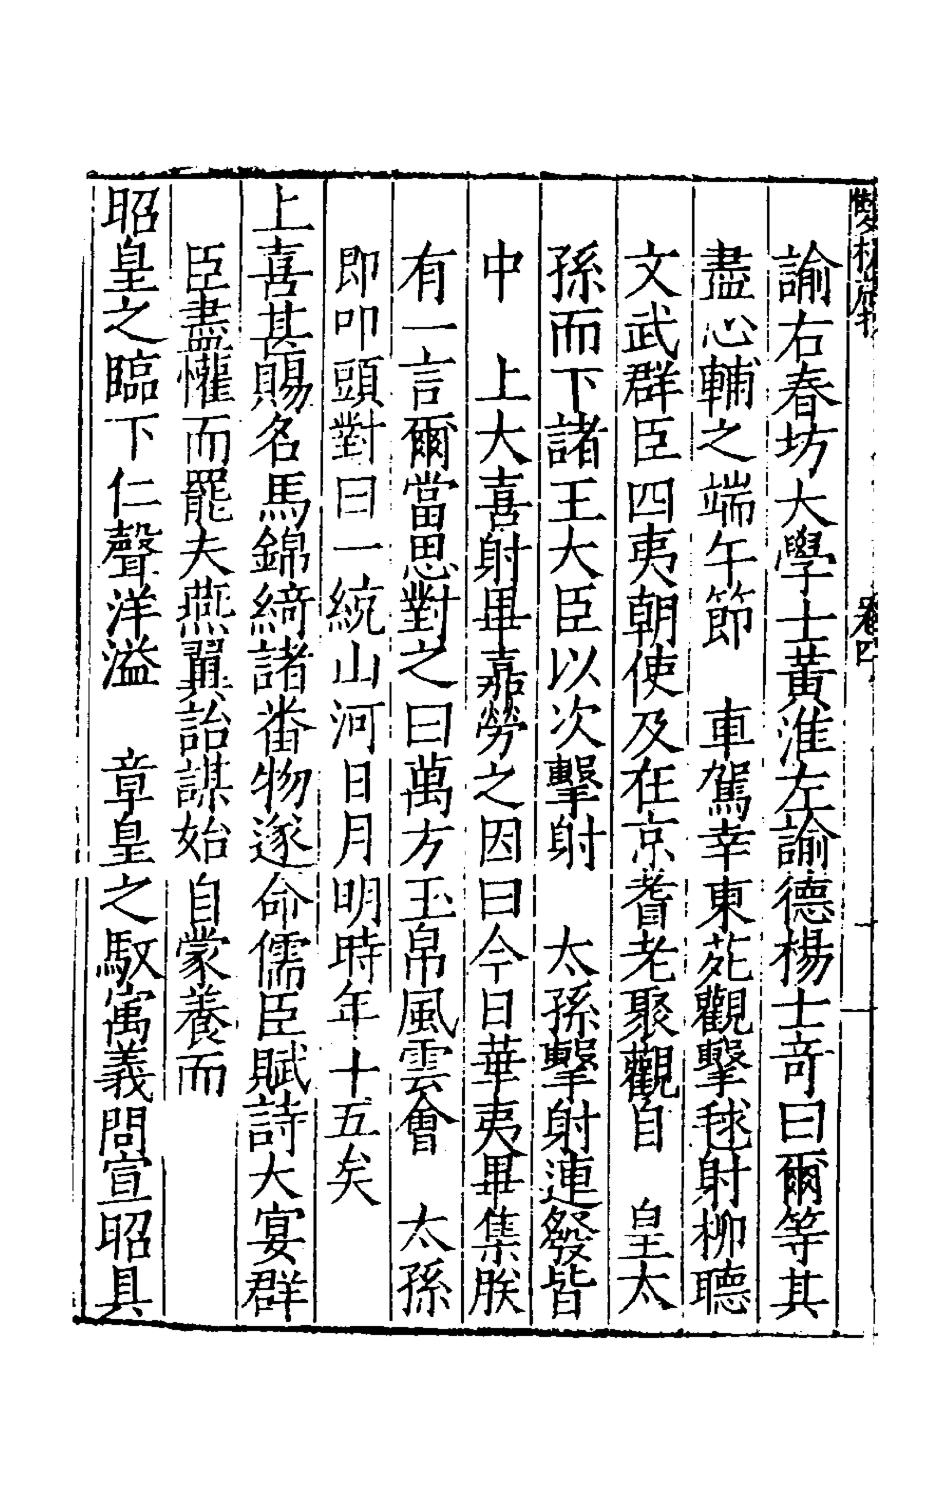 卷四
諭右春坊大學士黃淮左諭德楊士奇曰爾等其
盡心輔之端午節　車駕幸東苑觀擊毬射柳聽
文武群臣四夷朝使及在京耆老聚觀自　皇太
孫而下諸王大臣以次擊射　太孫擊射連發皆
中　上大喜射畢嘉勞之因曰今日華夷畢集朕
有一言爾當思對之曰萬方玉帛風雲會　太孫
即叩頭對曰一統山河日月明時年十五矣
上喜甚賜名馬錦綺諸番物遂命儒臣賦詩大宴群
臣盡懽而罷夫燕翼詒謀始自蒙養而
昭皇之臨下仁聲洋溢　章皇之馭寓義問宣昭具